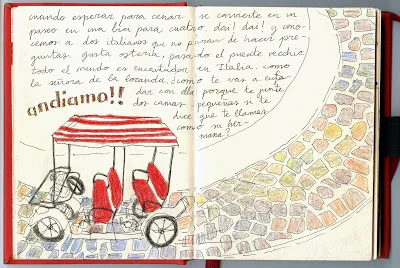 mundo esperar para cenar se convierte en un
paseo en una bici para cuatro dai! dai! y cono-
cemos a dos italianos que no paran de hacer pre-
guntas, gusta osteria, pasado el puente vecchio
todo el mundo es encantador en Italia. como
la señora de la locanda, ¿como te vas a enfa
dar con ella porque te junte
andiamo!!
dos camas pequeñas si te
dice que te llamas
como su her-
mana?